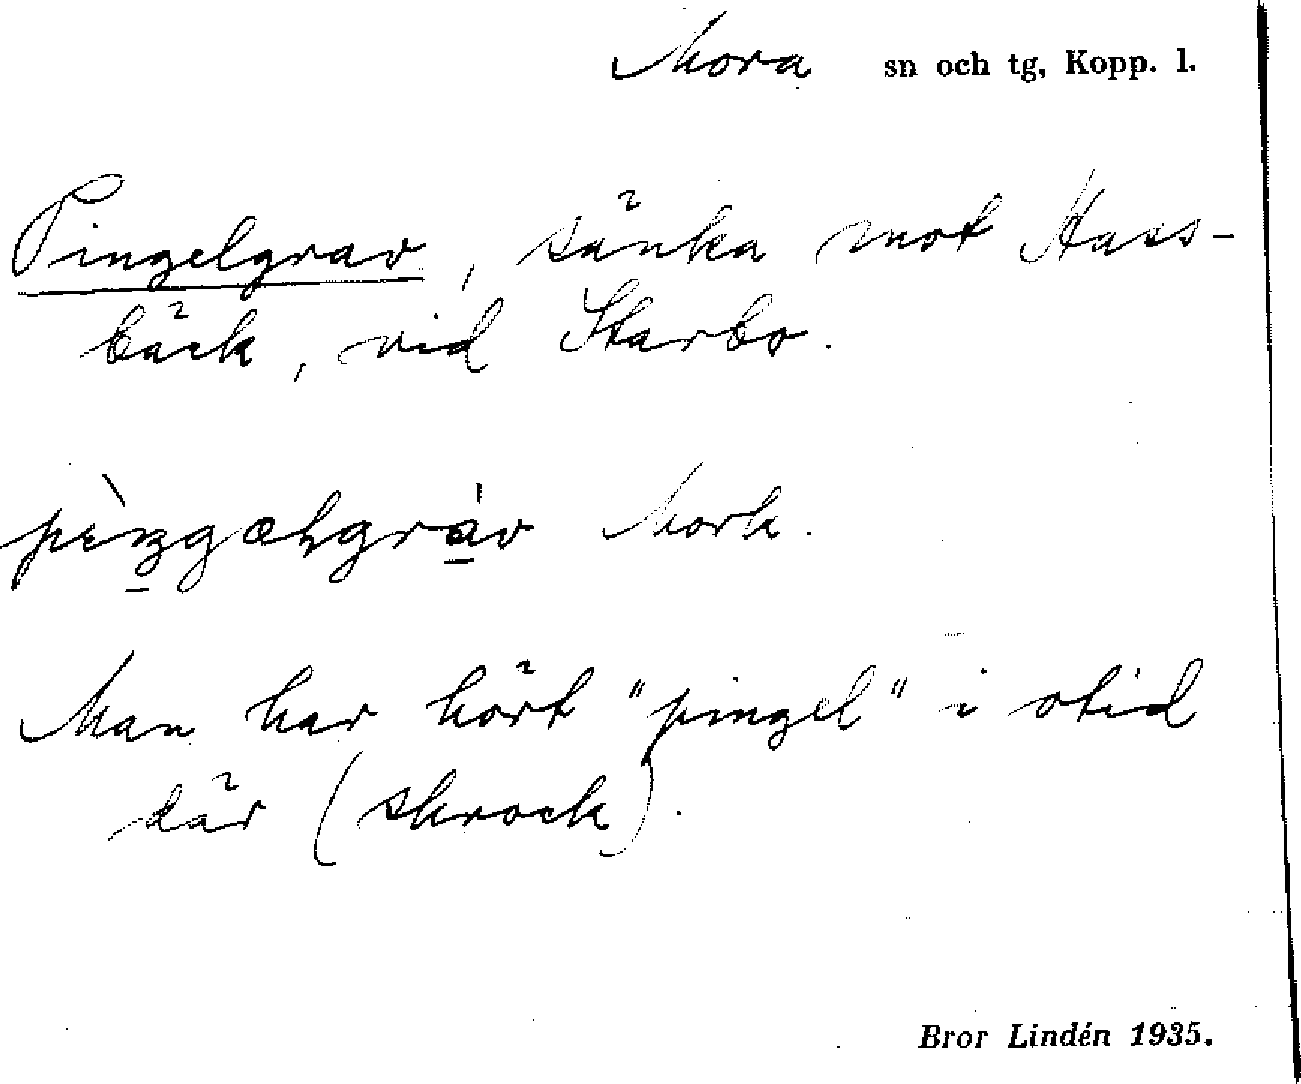 Mora sn och tg, Kopp. l.
Pingelgrav, sänka mot Hass-
bäck, vid Starbo.
Mork.
Man har hört "pingel" i otid
där (skrock).
Bror Lindén 1935.